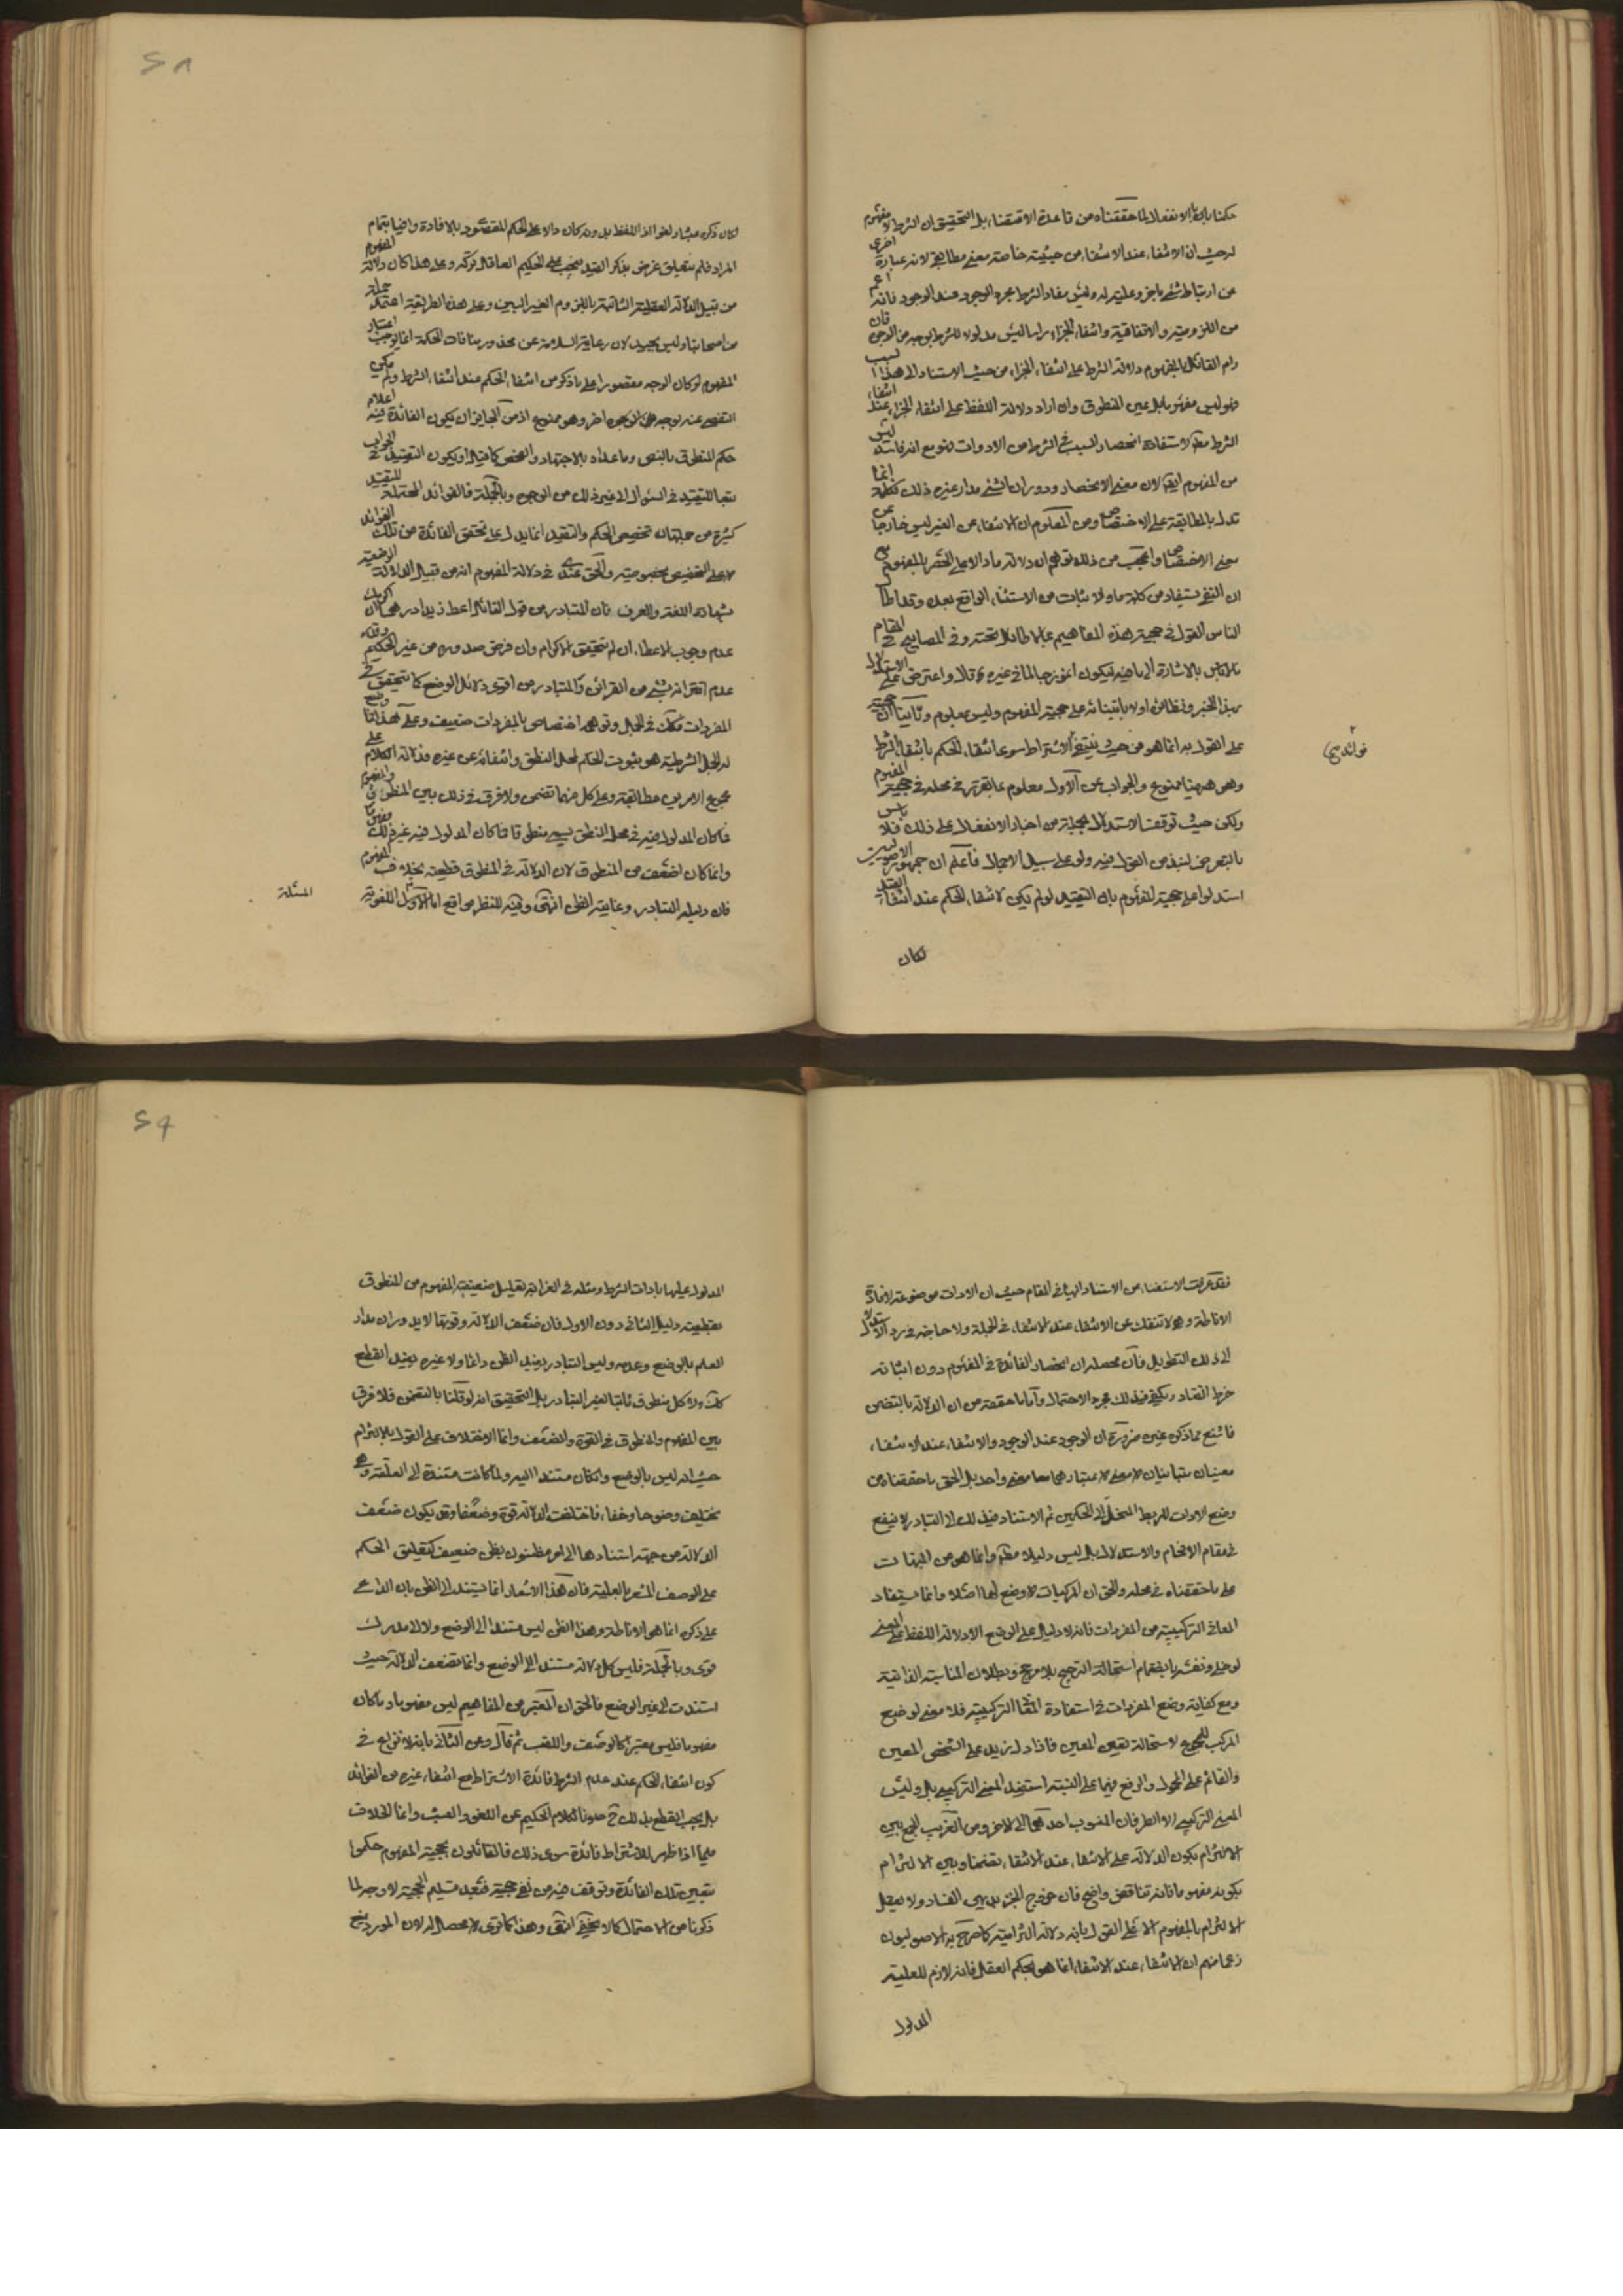 حكمنا بان الانفعال لما حققناه من قاعدة الاقتضاء بل التحقيق ان الشرط لا مفهوم
له حيث ان الانتفاء عند الانتفاء من حيثية خاصة معنى مطابقى لانه عبارة اخرى
عن ارتباط شئ باخر وعليته له وليس مفاد الشرط مجرد الوجود عند الوجود فانه اعم
من اللزومية والاتفاقية وانتفاء الجزاء راسا ليس مدلولا للشرط بوجه من الوجوه فان
رام القائل بالمفهوم دلالة الشرط على انتفاء الجزاء من حيث الاستناد الى هذا السبب
فهو ليس مفهوما بل عين المنطوق وان اراد دلالة اللفظ على انتفاء الجزاء عند انتفاء
الشرط مطلقا لاستفادة انحصار السبب فى الشرط من الادوات فهو مع انه فاسد ليس
من المفهوم ايضا لان معنى الانحصار ودوران الشئ مدار غيره ذلك ككلمة انما
تدل بالمطابقة على الاختصاص ومن المعلوم ان الانتفاء عن الغير ليس خارجا عن
معنى الاختصاص واعجب من ذلك توهم ان دلالة ما والا على الحصر بالمفهوم مع
ان النفى يستفاد من كلمة ما والاثبات من الاستثناء الواقع بعده وقد اطال
الناس القول فى حجية هذه المفاهيم بما لا طائل تحته وفى المصابيح فى المقام
لا باس بالاشارة الى ما فيه ليكون انموذجا لما فى غيره قال واعترض على الاستدلال
بهذا الخبر ونظائره اولا بابتنائه على حجية المفهوم وليس بمعلوم وثانيا ان حجيته
على القول به انما هو من حيث ينتفى للاشتراط سوى انتفاء الحكم بانتفاء الشرط
وهو ههنا ممنوع والجواب عن الاول معلوم بما تقرر فى محله فى حجية المفهوم
ولكن حيث توقف الاستدلال بجملة من اخبار الانفعال على ذلك فلا باس
بالتعرض لنبذ من القول فيه ولو على سبيل الاجمال فاعلم ان جمهور الاصوليين
استدلوا على حجية المفهوم بان التقييد لو لم يكن لانتفاء الحكم عند انتفاء القيد
لكان
فوائد سمى
لكان ذكره مثبا ولغوا اذ اللفظ بدونه كان دالا على الحكم المقصود بالافادة وافيا بتمام
المراد فلم يتعلق غرض بذكر القيد فيجب على الحكيم العاقل تركه وعلى هذا كان دلالة المفهوم
من قبيل الدلالة العقلية الثابتة باللزوم الغير البين وعلى هذه الطريقة اعتمد جملة
من اصحابنا وليس بجيد لان رعاية السلامة عن محذور منافات الحكمة انما يوجب اعتبار
المفهوم لو كان الوجه مقصورا على ما ذكر من انتفاء الحكم عند انتفاء الشرط ولم يمكن
التفصى عنه بوجه اخر وهو ممنوع اذ من الجايز ان يكون الفائدة فيه اعلام
حكم المنطوق بالنص وما عداه بالاجتهاد والفحص كما قيل او يكون التقييد فى الجواب
تبعا للتقييد فى السؤال الى غير ذلك من الوجوه وبالجملة فالفوائد المحتملة للتقييد
كثيرة من جملتها تخصيص الحكم والتقييد انما يدل على تحقق الفائدة من تلك الفوائد
لا على التخصيص بخصوصية والحق عندى فى دلالة المفهوم انه من قبيل الدلالة الوضعية
بشهادة اللغة والعرف فان المتبادر من قول القائل اعط زيدا درهما ان اكرمك
عدم وجوب الاعطاء ان لم يتحقق الاكرام وان فرض صدوره من غير الحكيم وقد
عدم اقترانه بشئ من القرائن والمتبادر من اقوى دلائل الوضع كما يتحقق فى
المفردات فكك فى الجمل وتوهم اختصاص بالمفردات ضعيف وعلى هذا فما وضع
له الجمل الشرطية هو ثبوت الحكم لمحل النطق وانتفائه عن غيره فدلالة الكلام على
مجموع الامرين مطابقة وعلى كل منهما تضمن ولا فرق فى ذلك بين المنطوق والمفهوم
فما كان المدلول فيه فى محل النطق يسمى منطوقا وما كان المدلول فيه غير ذلك مفهوما
وانما كان اضعف من المنطوق لان الدلالة فى المنطوق قطعية بخلاف المفهوم
فان دليله التبادر وغايته الظن انتهى وفيه للنظر مواقع اما الاول اللغوية
المسئلة
٢٨
فقد عرفت الاستغناء من الاستناد اليها فى المقام حيث ان الادات موضوعة لافادة
الاناطة وهى لا تنفك عن الانتفاء عند الانتفاء فى الجملة ولا حاجة فى رد الاستدلال
الى ذلك التطويل فان محصله ان انحصار الفائدة فى المفهوم دون اثباته
خرط القتاد ويكفى فى ذلك مجرد الاحتمال واما ما حققه من ان الدلالة بالتضمن
فاشنع مما ذكره غيره ضرورة ان الوجود عند الوجود والانتفاء عند الانتفاء
معنيان متباينان لا معنى لاعتبارهما معا معنى واحد بل الحق ما حققناه من
وضع الادات للربط المنحل الى الحكمين ثم الاستناد فى ذلك الى التبادر لا ينفع
فى مقام الافحام والاستدلال بل ليس دليلا مطلقا وانما هو من المبهمات
على ما حققناه فى محله والحق ان المركبات لا وضع لها اصلا وانما يستفاد
المعانى التركيبية من المفردات فانه لا دليل على الوضع الا دلالة اللفظ على المعنى
لو خلى ونفسه بانضمام استحالة الترجيح بلا مرجح وبطلان المناسبة الذاتية
ومع كفاية وضع المفردات فى استفادة المعانى التركيبية فلا معنى لوضع
المركب للمجموع لاستحالة تعيين المعين فاذا دل زيد على الشخص المعين
والقائم على المحمول والرفع فيهما على النسبة استفيد المعنى التركيبى بل وليس
المعنى التركيبى الا الطرفان المنسوب احدهما الى الاخر ومن الغريب الجمع بين
الالتزام بكون الدلالة على الانتفاء عند الانتفاء تضمنا وبين الالتزام
بكونه مفهوما فانه تناقض واضح فان خروج الجزء بديهى الفساد ولا يعقل
الالتزام بالمفهوم الا على القول بانه دلالة التزامية كما صرح به الاصوليون
زعما منهم ان الانتفاء عند الانتفاء انما هو بحكم العقل فانه لازم للعلية
المدلول
المدلول عليها بادات الشرط ومثله فى الغرابة تعليل ضعيفية المفهوم من المنطوق
بقطعية دليل الثانى دون الاول فان ضعف الدلالة وقوتها لا يدوران مدار
العلم بالوضع وعدمه وليس التبادر يفيد الظن دائما ولا غيره يفيد القطع
كك ولا كل منطوق ثابتا لغير التبادر بل التحقيق انه لو قلنا بالتضمن فلا فرق
بين المفهوم والمنطوق فى القوة والضعف وانما الاختلاف على القول بالالتزام
حيث انه ليس بالوضع وان كان مستندا اليه ولما كانت مستندة الى العلقة وهى
تختلف وضوحا وخفاء فاختلفت الدلالة قوة وضعفا وقد يكون ضعف
الدلالة من جهة استنادها الى امر مظنون بظن ضعيف كتعليق الحكم
على الوصف المشعر بالعلية فان هذا الاشعار انما يستند الى الظن بان الداعى
على ذكره انما هى الاناطة وهذا الظن ليس مستندا الى الوضع ولا الى مدرك
قوى وبالجملة فليس كل دلالة مستند الى الوضع وانما تضعف الدلالة حيث
استندت الى غير الوضع فالحق ان المعتبر من المفاهيم ليس مفهوما وما كان
مفهوما فليس معتبرا كالوصف واللقب ثم قال وعن الثانى بانه لا نزاع فى
كون انتفاء الحكم عند عدم الشرط فائدة الاشتراط مع انتفاء غيره من الفوائد
بل يجب القطع بذلك ح صونا لكلام الحكيم عن اللغو والعبث وانما الخلاف
فيما اذا ظهر للاشتراط فائدة سوى ذلك فالقائلون بحجية المفهوم حكموا
بتعيين تلك الفائدة وتوقف فيه من نفى حجيته فبعد تسليم الحجية لا وجه لما
ذكره من الاحتمال كما لا يخفى انتهى وهذا كما ترى لا محصل له لان المورد يمنع
٢٩